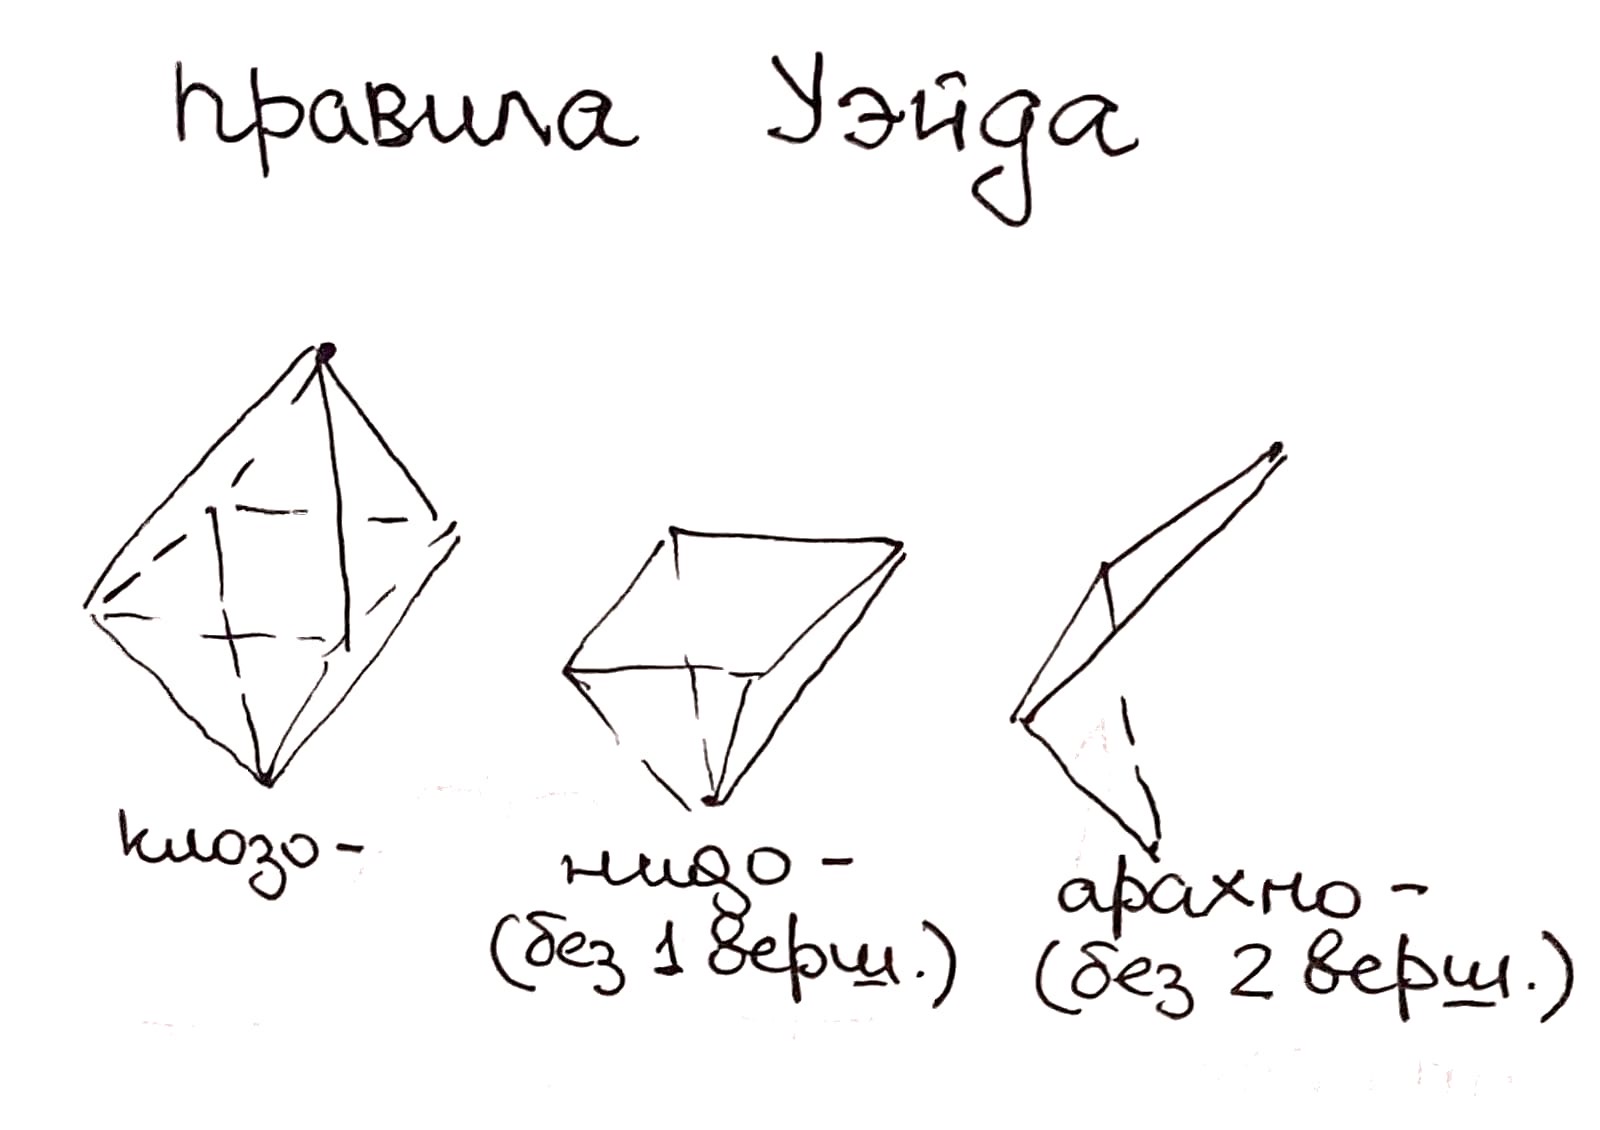 правила Уэйда
клозо-
нидо-
(без 1 верш.)
арахно-
(без 2 верш.)